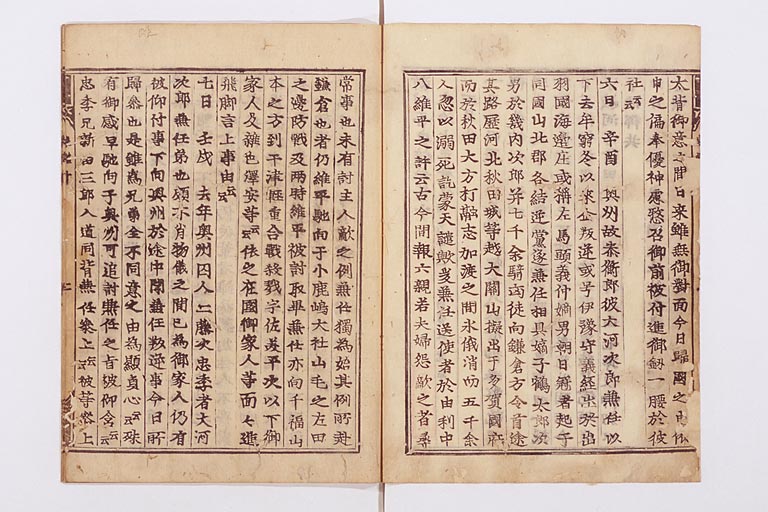 太背御意之間日来雖無御對面今日歸國之由依
申之備奉優神慮慜召御前被付進御釼一腰於彼
社云云
六日 辛酉 奥州故泰衡郎從大河次郎兼任以
下去年窮冬以来企叛逆或号伊豫守義經出於出
羽國海邊庄或稱左馬頭義仲嫡男朝日冠者起于
同國山北郡各結逆黨遂兼任相具嫡子鶴太郎次
男於幾内次郎并七千余騎凶徒向鎌倉方令首途
其路歷河北秋田城等越大關山擬出于多賀國府
而於秋田大方打融志加渡之間氷俄消而五千余
人忽以溺死訖蒙天譴歟爰兼任送使者於由利中
八維平之許云古今間報六親若夫婦怨敵之者尋
常事也未有討主人敵之例兼任獨為始其例所赴
鎌倉也者仍維平馳向于小鹿嶋大社山毛之左田
之邊防戦及両時維平被討取畢兼任亦向千福山
本之方到于津輕重合戰殺戮宇佐美平次以下御
家人及雜色澤安等云云依之在國御家人等面々進
飛脚言上事由云云
七日 壬戌 去年奥州囚人二藤次忠季者大河
次郎兼任弟也頗亦背物儀之間已為御家人仍有
被仰付事下向奥州於途中聞兼任叛逆事今日所
歸參也是雖為兄弟全不同意之由為顯貞心云云殊
有御感早馳向于奥州可追討兼任之旨被仰含云云
忠季兄新田三郎入道同背兼任參上云云彼等參上